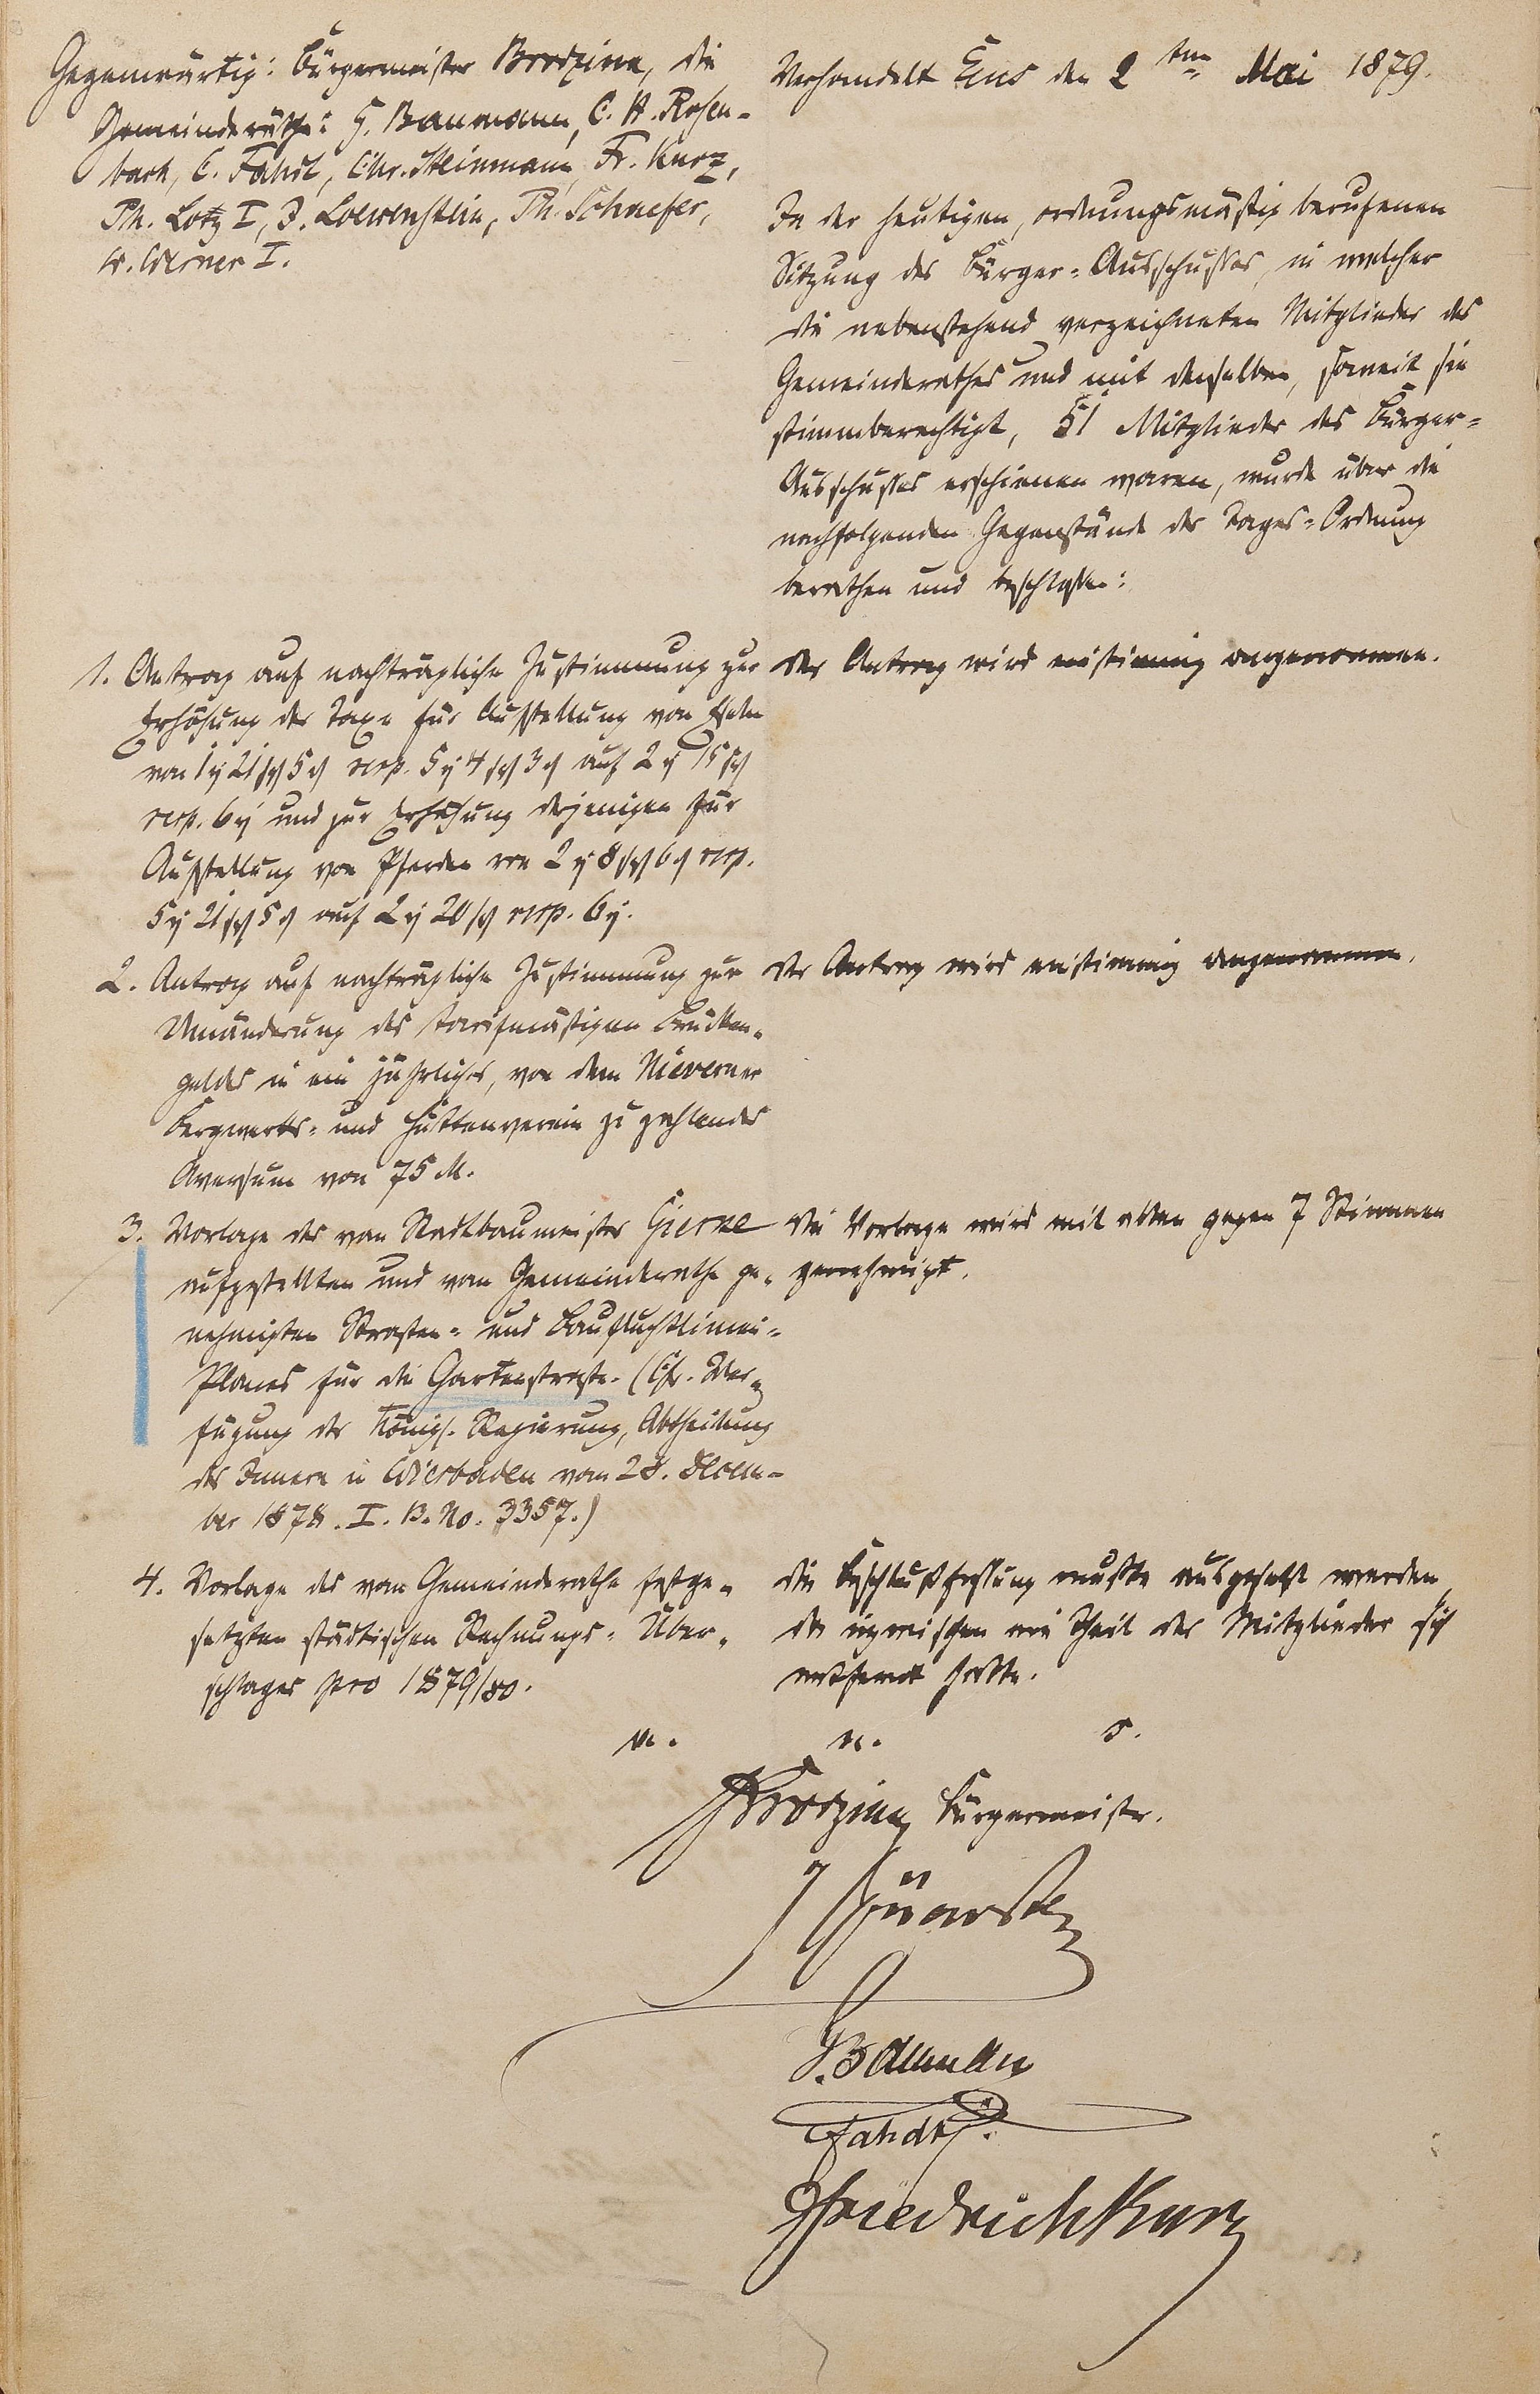 Gegenwärtig: Bürgermeister Brodzina, die
Gemeinderäthe: H. Baumann, C. H. Rosen-
bach, C. Fahdt, Chr. Steinmann, Fr. Kurz,
Ph. Lotz I, J. Loewenstein, Ph. Schaefer,
W. Werner I.
Verhandelt Ems den 2ten Mai 1879.
In der heutigen, ordnungsmäßig berufenen
Sitzung des Bürger-Ausschusses, in welcher
die nebenstehend verzeichneten Mitglieder des
Gemeinderathes und mit denselben, soweit sie
stimmberechtigt, 51 Mitglieder des Bürger-
Ausschusses erschienen waren, wurde über die
nachfolgenden Gegenstände der Tages-Ordnung
berathen und beschlossen:
1. Antrag auf nachträgliche Zustimmung zur
Erhöhung der Taxe für Aufstellung von Eseln
von 1 M 21 5 resp. 5 4 3 auf 2 15
resp. 6 und zur Erhöhung derjenigen für
Aufstellung von Pferden von 2 8 6 resp.
5 21 5 auf 2 20 resp. 6.
Der Antrag wird einstimmig angenommen.
2. Antrag auf nachträgliche Zustimmung zur
Umänderung des tarifmäßigen Brücken-
geldes in ein jährliches, von dem Nieverner
Bergwerks- und Hüttenverein zu zahlendes
Aversum von 75 M.
Der Antrag wird einstimmig angenommen.
3. Vorlage des vom Stadtbaumeister Gierne
aufgestellten und vom Gemeinderathe ge-
nehmigten Straßen- und Baufluchtlinien-
Planes für die Gartenstraße. (Cfr. Ver-
fügung der Königl. Regierung, Abtheilung
des Innern in Wiesbaden vom 28. Decem-
ber 1878. I. B. No. 3357.)
Die Vorlage wird mit allen gegen 7 Stimmen
genehmigt.
4. Vorlage des vom Gemeinderathe festge-
setzten städtischen Rechnungs-Über-
schlages pro 1879/80.
Die Beschlußfassung mußte ausgesetzt werden,
da inzwischen ein Theil der Mitglieder sich
entfernt hatte.
v. n. s.
Brodzina Bürgermeister.
H. Baumann
Fahdt C.
Friedrich Kurz